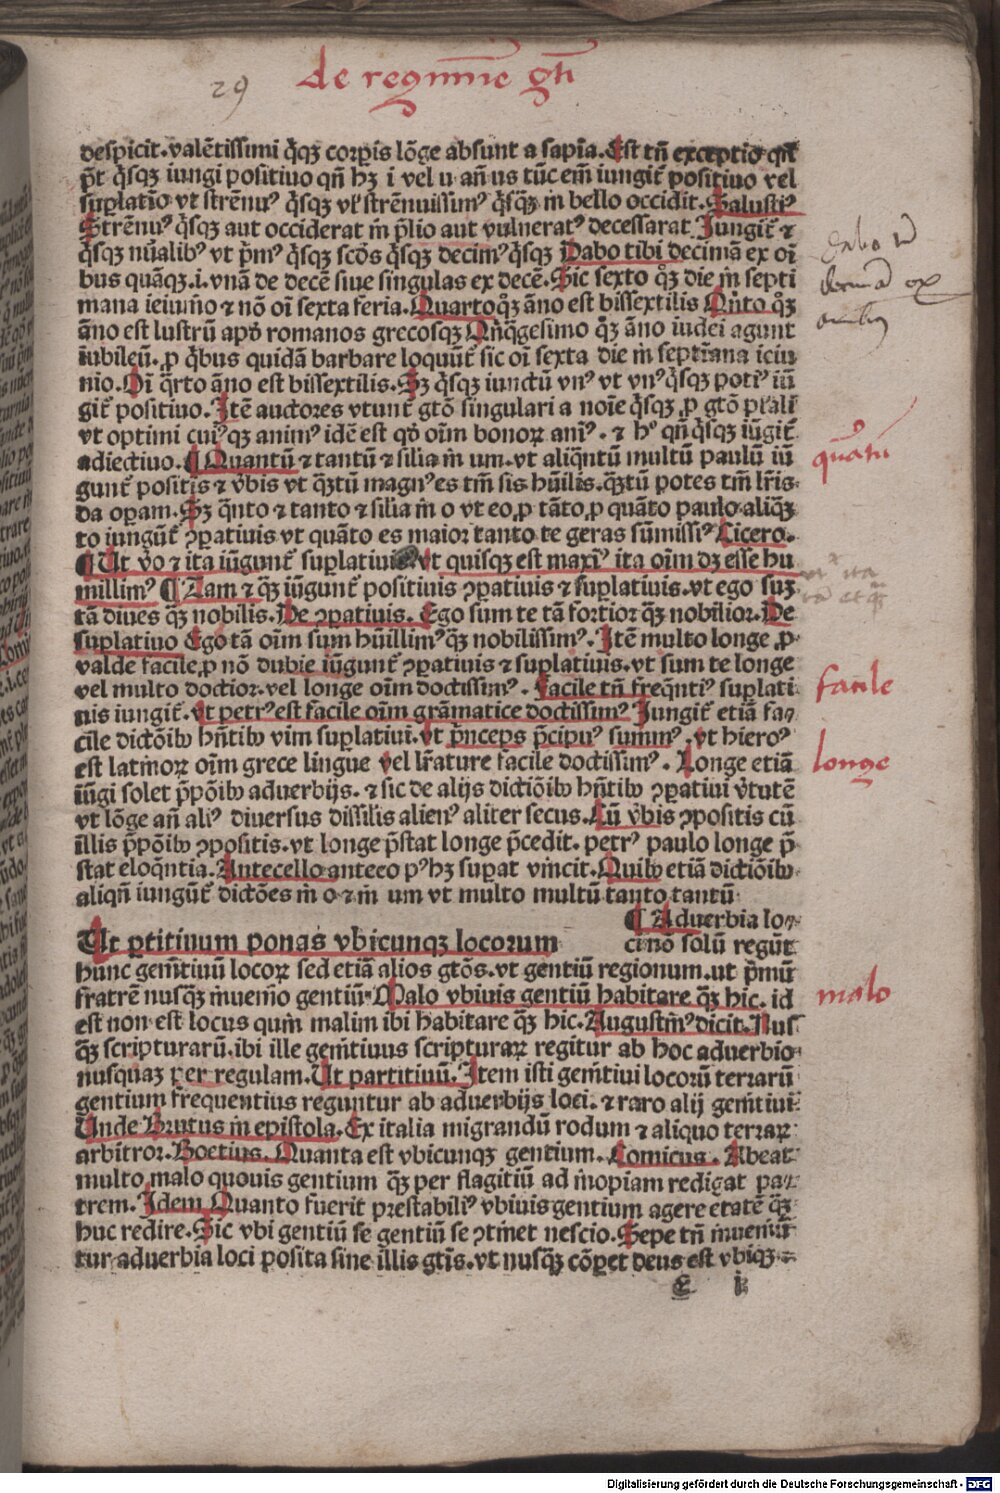 29 de regimine gti
despicit. valētissimi q̄qꝫ corꝑis lōge absunt a sapīa. Est tñ exceptio qñ
p̄t q̄sqꝫ iungi positiuo qñ hꝫ i vel u añ us tūc em̄ iungit᷑ positiuo vel
suplatīo vt strēnuꝰ q̄sqꝫ vl' strēnuissimꝰ q̄sqꝫ in bello occidit. Salustiꝰ
Strēnuꝰ q̄sqꝫ aut occiderat in p̄lio aut vulneratꝰ decesserat Iungit᷑ ⁊
q̄sqꝫ nūalibꝰ vt p̄mꝰ q̄sqꝫ scdōs q̄sqꝫ decimꝰ q̄sqꝫ Dabo tibi decimā ex oī
bus quāqꝫ .i. vnā de decē siue singulas ex decē. Sic sexto q̊ꝫ die in septi
mana ieiuño ⁊ nō oī sexta feria. Quarto q̊ꝫ āno est bissextilis Qn̄to q̊ꝫ
āno est lustrū apd̓ romanos grecosqꝫ Qn̄q̄gesimo q̊ꝫ āno iudei agunt
iubileū. ꝓ q̄bus quidā barbare loquūt᷑ sic oī sexta die in septīana ieiu
nio. Oī q̄rto āno est bissextilis. Sꝫ q̄sqꝫ iunctū vnꝰ vt vnꝰ q̄sqꝫ potiꝰ iū
git᷑ positiuo. Itē auctores vtunt᷑ gtō singulari a noīe q̄sqꝫ ꝓ gtō plāli
vt optimi cuiꝰqꝫ animꝰ idē est qd̓ oīm bonoꝝ aniꝰ. ⁊ hº qñ q̄sqꝫ iūgit᷑
adiectiuo. ¶ Quantū ⁊ tantū ⁊ silia in um. vt aliq̄ntū multū paulū iū
gunt᷑ positis ⁊ v̄bis vt q̄ꝫtū magnꝰ es tm̄ sis hūilis. q̄ꝫtū potes tm̄ lr̄is
da oꝑam. Sꝫ q̄nto ⁊ tanto ⁊ silia in o vt eo, ꝓ tāto, ꝓ quāto paulo aliq̄ꝫ
to iungūt᷑ ꝯꝑatiuis vt quāto es maior tanto te geras sūmissiꝰ Cicero.
¶ Ut v̊o ⁊ ita iūgunt᷑ suplatiuis vt quisqꝫ est maxīꝰ ita oīm dꝫ esse hu
millimꝰ ¶ Tam ⁊ q̄ꝫ iūgunt᷑ positiuis ꝯꝑatiuis ⁊ suplatiuis. vt ego suꝫ
tā diues q̄ꝫ nobilis. De ꝯꝑatiuis. Ego sum te tā fortior q̄ꝫ nobilior. De
suplatiuo Ego tā oīm sum hūillimꝰ q̄ꝫ nobilissimꝰ. Itē multo longe, ꝓ
valde facile, ꝓ nō dubie iūgunt᷑ ꝯꝑatiuis ⁊ suplatiuis. vt sum te longe
vel multo doctior. vel longe oīm doctissimꝰ. Facile tñ freq̄ntiꝰ suplati
uis iungit᷑. vt petrꝰ est facile oīm grāmatice doctissimꝰ Iungit᷑ etiā fa⸗
cile dictōibꝫ hn̄tibꝫ vim suꝑlatiui. vt p̄nceps p̄cipuꝰ summꝰ. vt hieroꝰ
est latinoꝝ oīm grece lingue vel lr̄ature facile doctissimꝰ. Longe etiā
iūgi solet p̄pōibꝫ aduerbijs. ⁊ sic de alijs dictiōibꝫ hn̄tibꝫ ꝯꝑatiui v̄tutē
vt lōge añ aliꝰ diuersus dissilis alienꝰ aliter secus. Cū v̄bis ꝯpositis cū
illis p̄pōibꝫ ꝯpositis. vt longe p̄stat longe p̄cedit. petrꝰ paulo longe p̄
stat eloq̄ntia. Antecello anteeo pꝰhꝫ suꝑat vincit. Quibꝫ etiā dictiōibꝫ
aliqñ iungūt᷑ dictōes in o ⁊ in um vt multo multū tanto tantū
¶ Aduerbia lo⸗
Ut ꝑtitiuum ponas vbicunqꝫ locorum
ci nō solū regūt
hunc gēītiuū locoꝝ sed etiā alios gtōs. vt gentiū regionum. ut p̄mū
fratrē nusq̄ꝫ inuenio gentiū. Malo vbiuis gentiū habitare q̄ꝫ hic. id
est non est locus quin malim ibi habitare q̄ꝫ hic. Augustinꝰ dicit. Nus
q̄ꝫ scripturarū. ibi ille gēitiuus scripturaꝝ regitur ab hoc aduerbio
nusquaꝫ per regulam. Ut partitiuū. Item isti gēitiui locorū terrarū
gentium frequentius reguntur ab aduerbijs loci. ⁊ raro alij gēitiui
Unde Brutus in epistola. Ex italia migrandū rodum ⁊ aliquo terraꝝ
arbitror. Boetius. Quanta est vbicunqꝫ gentium. Comicus. Abeat
multo malo quouis gentium q̄ꝫ per flagitiū ad inopiam redigat pa⸗
trem. Idem Quanto fuerit prestabiliꝰ vbiuis gentium agere etatē q̄ꝫ
huc redire. Sic vbi gentiū se gentiū se ꝯtinet nescio. Sepe tñ inueniū
tur aduerbia loci posita sine illis gtīs. vt nusq̄ꝫ cōꝑet deus est vbiqꝫ
quātū
facile
longe
malo
Digitalisierung gefördert durch die Deutsche Forschungsgemeinschaft - DFG